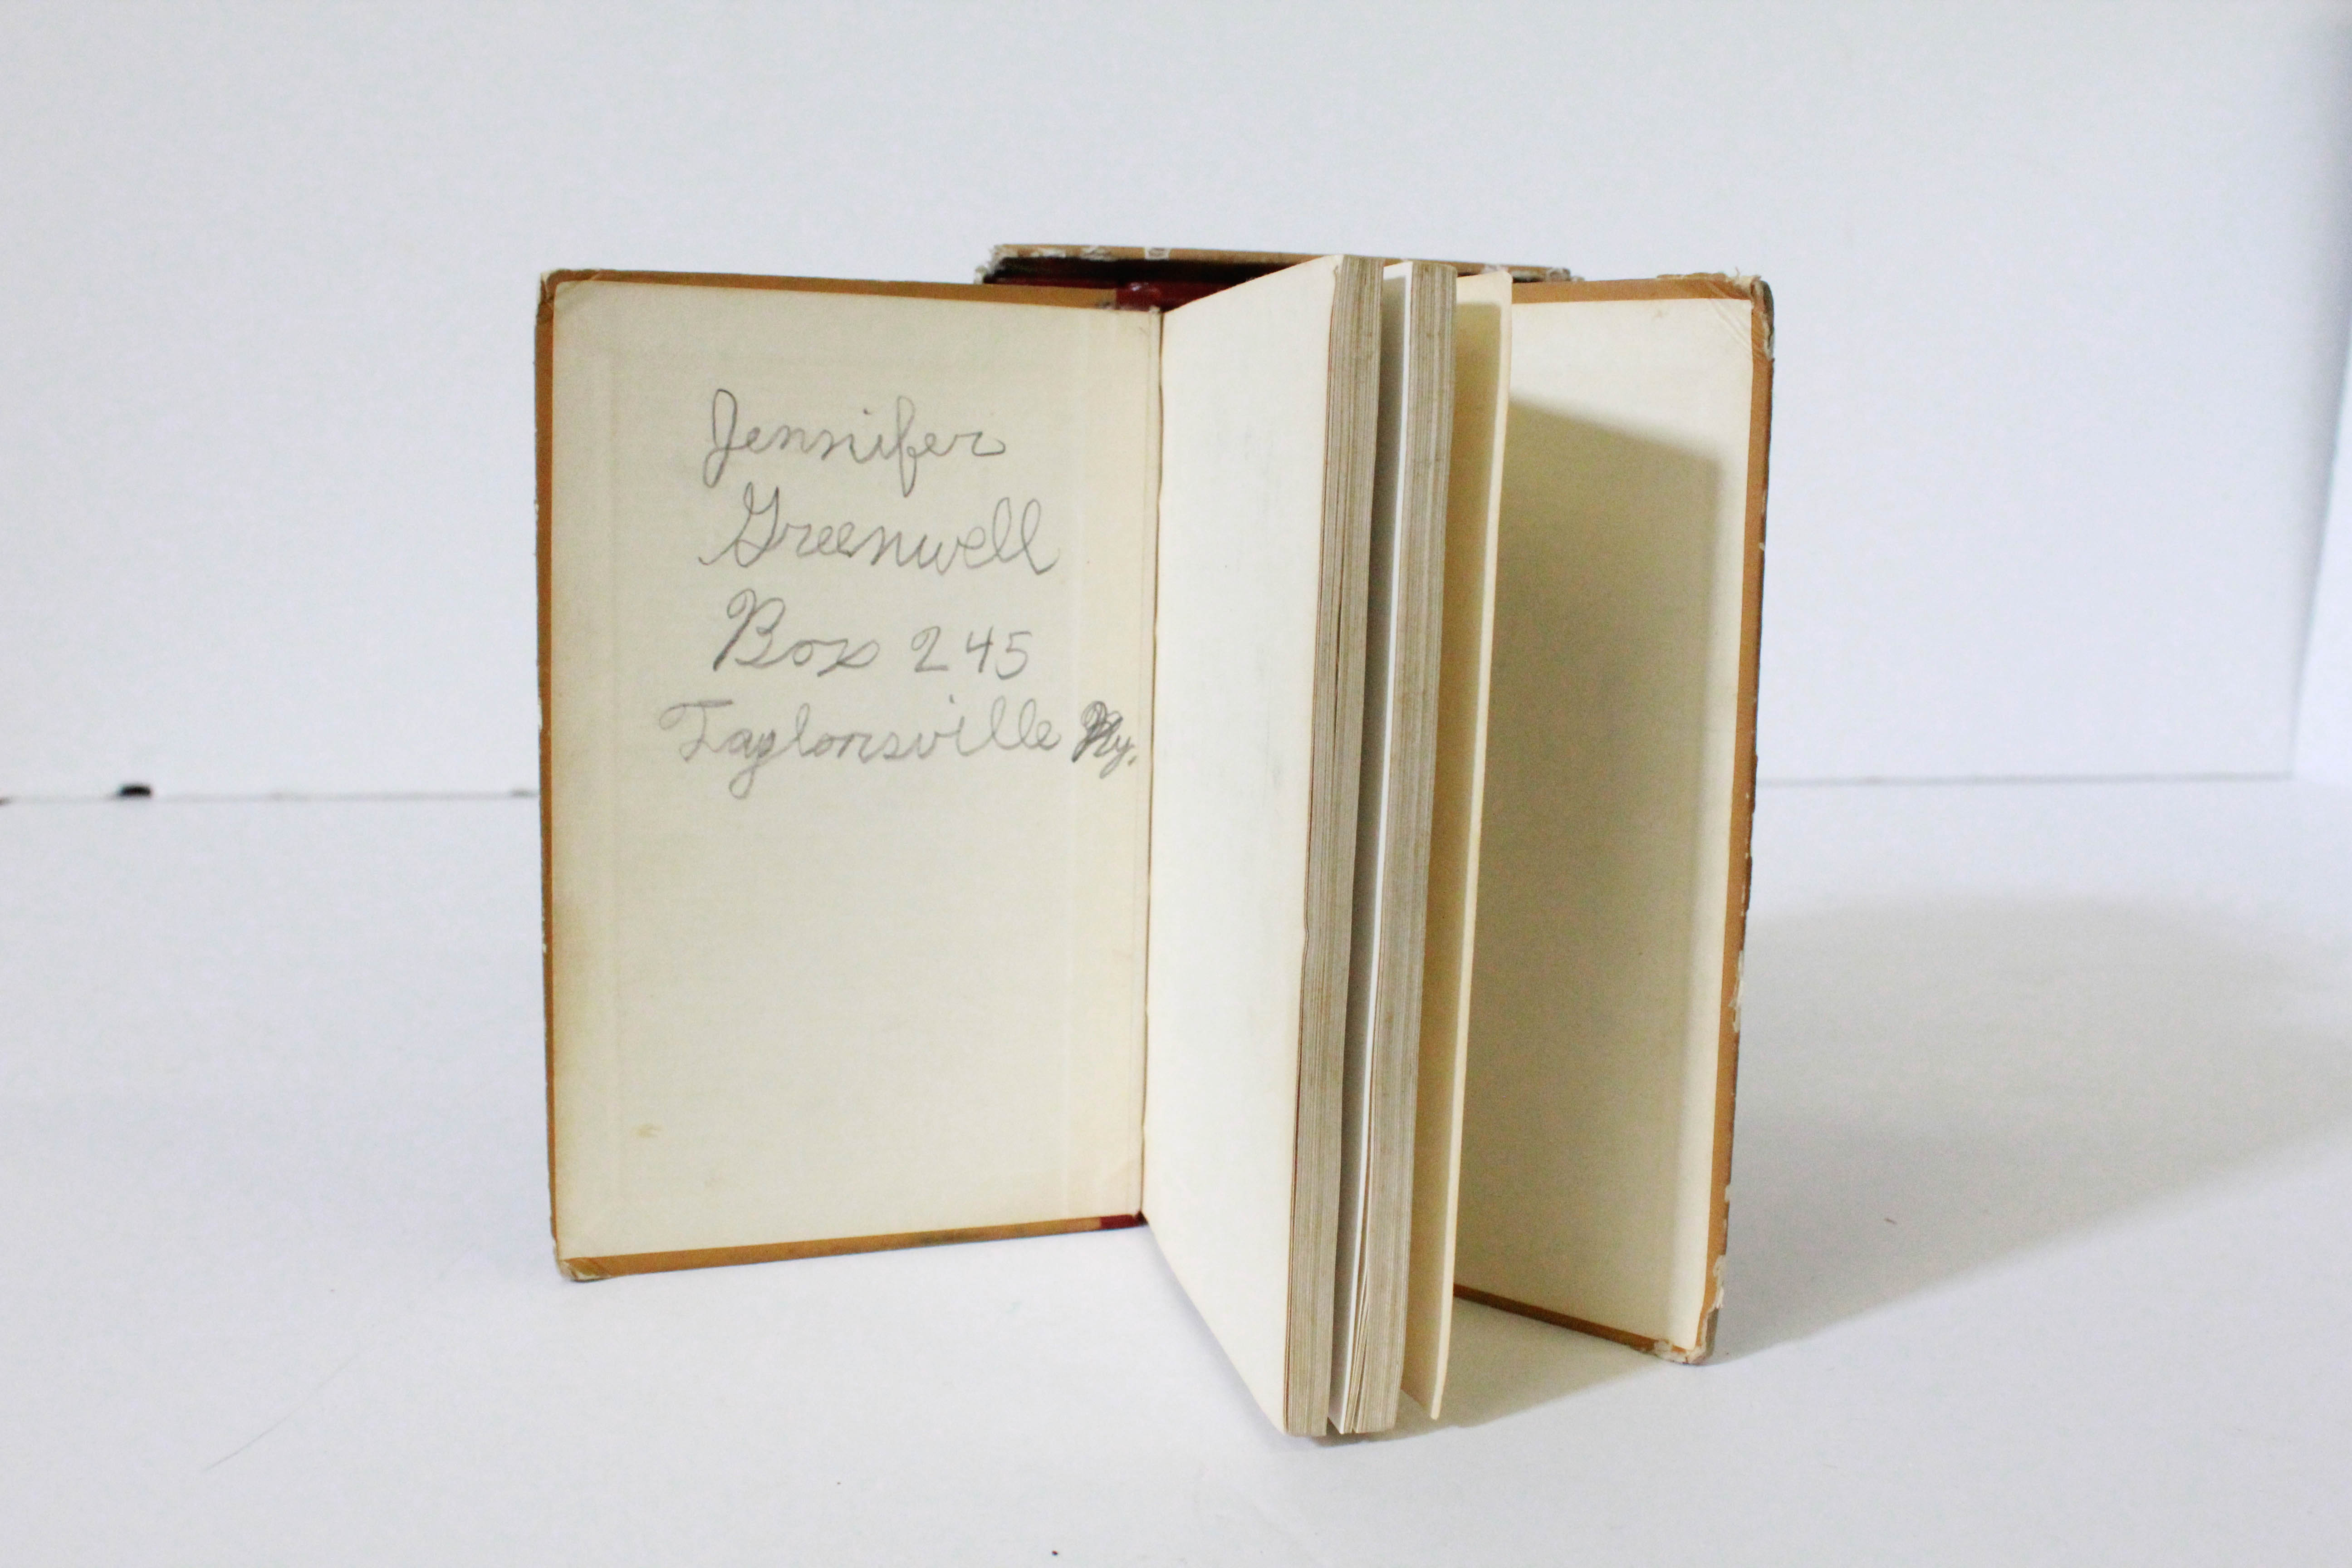 Jennifer
Greenwell
Box 245
Taylorsville Ky.